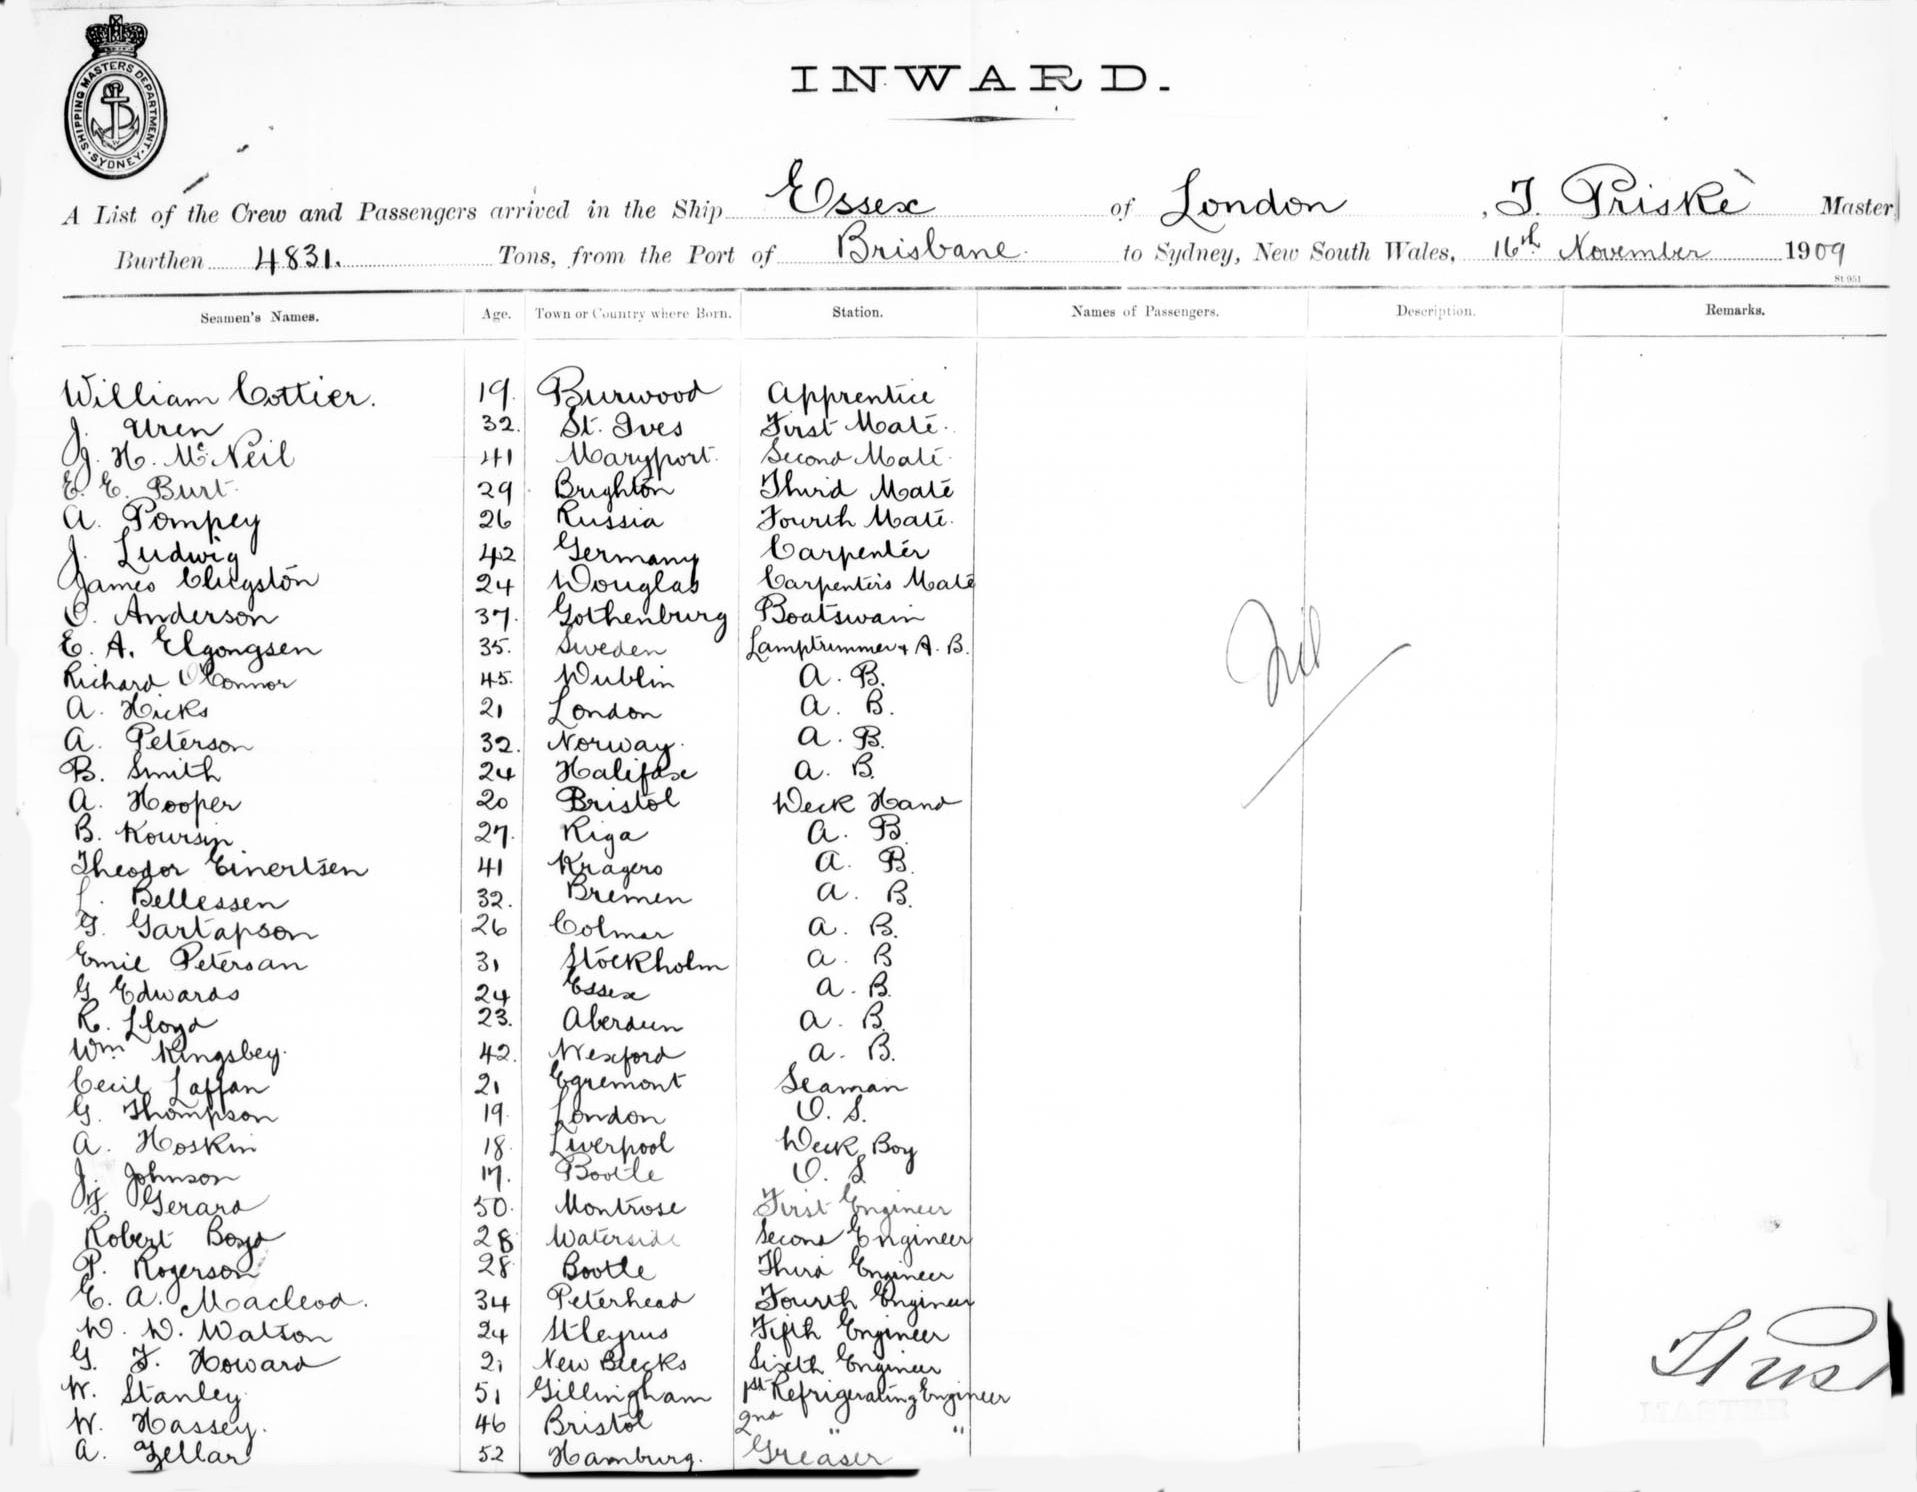 SHIPPING MASTERS DEPARTMENT · SYDNEY ·
INWARD.
A List of the Crew and Passengers arrived in the Ship Essex of London, T. Priske Master
Burthen 4831. Tons, from the Port of Brisbane to Sydney, New South Wales, 16th November 1909
St 951
Seamen's Names. Age. Town or Country where Born. Station. Names of Passengers. Description. Remarks.
William Cottier. 19. Burwood Apprentice
J. Uren 32. St. Ives First Mate.
J. H. McNeil 41 Maryport. Second Mate.
E. E. Burt. 29 Brighton Third Mate
A. Pompey 26 Russia Fourth Mate.
J. Ludwig 42 Germany Carpenter
James Clugston 24 Douglas Carpenter's Mate
O. Anderson 37. Gothenburg Boatswain
E. A. Elgongsen 35. Sweden Lamptrimmer & A. B.
Richard O'Connor 45. Dublin A. B.
A. Hicks 21 London A. B.
A. Peterson 32. Norway. A. B.
B. Smith 24 Halifax A. B.
A. Hooper 20 Bristol Deck Hand
B. Koursin 27. Riga A. B.
Theodor Einertsen 41 Kragero A. B.
L. Bellessen 32. Bremen A. B.
G. Gartapson 26 Colmar A. B.
Emil Petersan 31 Stockholm A. B
G Edwards 24 Essex A. B.
R. Lloyd 23. Aberdeen A. B.
Wm Kingsbey. 42. Wexford A. B.
Cecil Laffan 21 Egremont Seaman
G. Thompson 19. London O. S.
A. Hoskin 18. Liverpool Deck Boy
J. Johnson 17. Bootle O. S.
Gerard 50. Montrose First Engineer
Robert Boyd 28 Waterside Second Engineer
P. Rogerson 28 Bootle Third Engineer
E. A. Macleod. 34 Peterhead Fourth Engineer
W. W. Watson 24 Fifth Engineer
G. F. Howard 21 New Sixth Engineer
W. Stanley 51 Gillingham 1st Refrigerating Engineer
W. Hassey. 46 Bristol 2nd " "
A. Zellar 52 Hamburg. Greaser
Nil